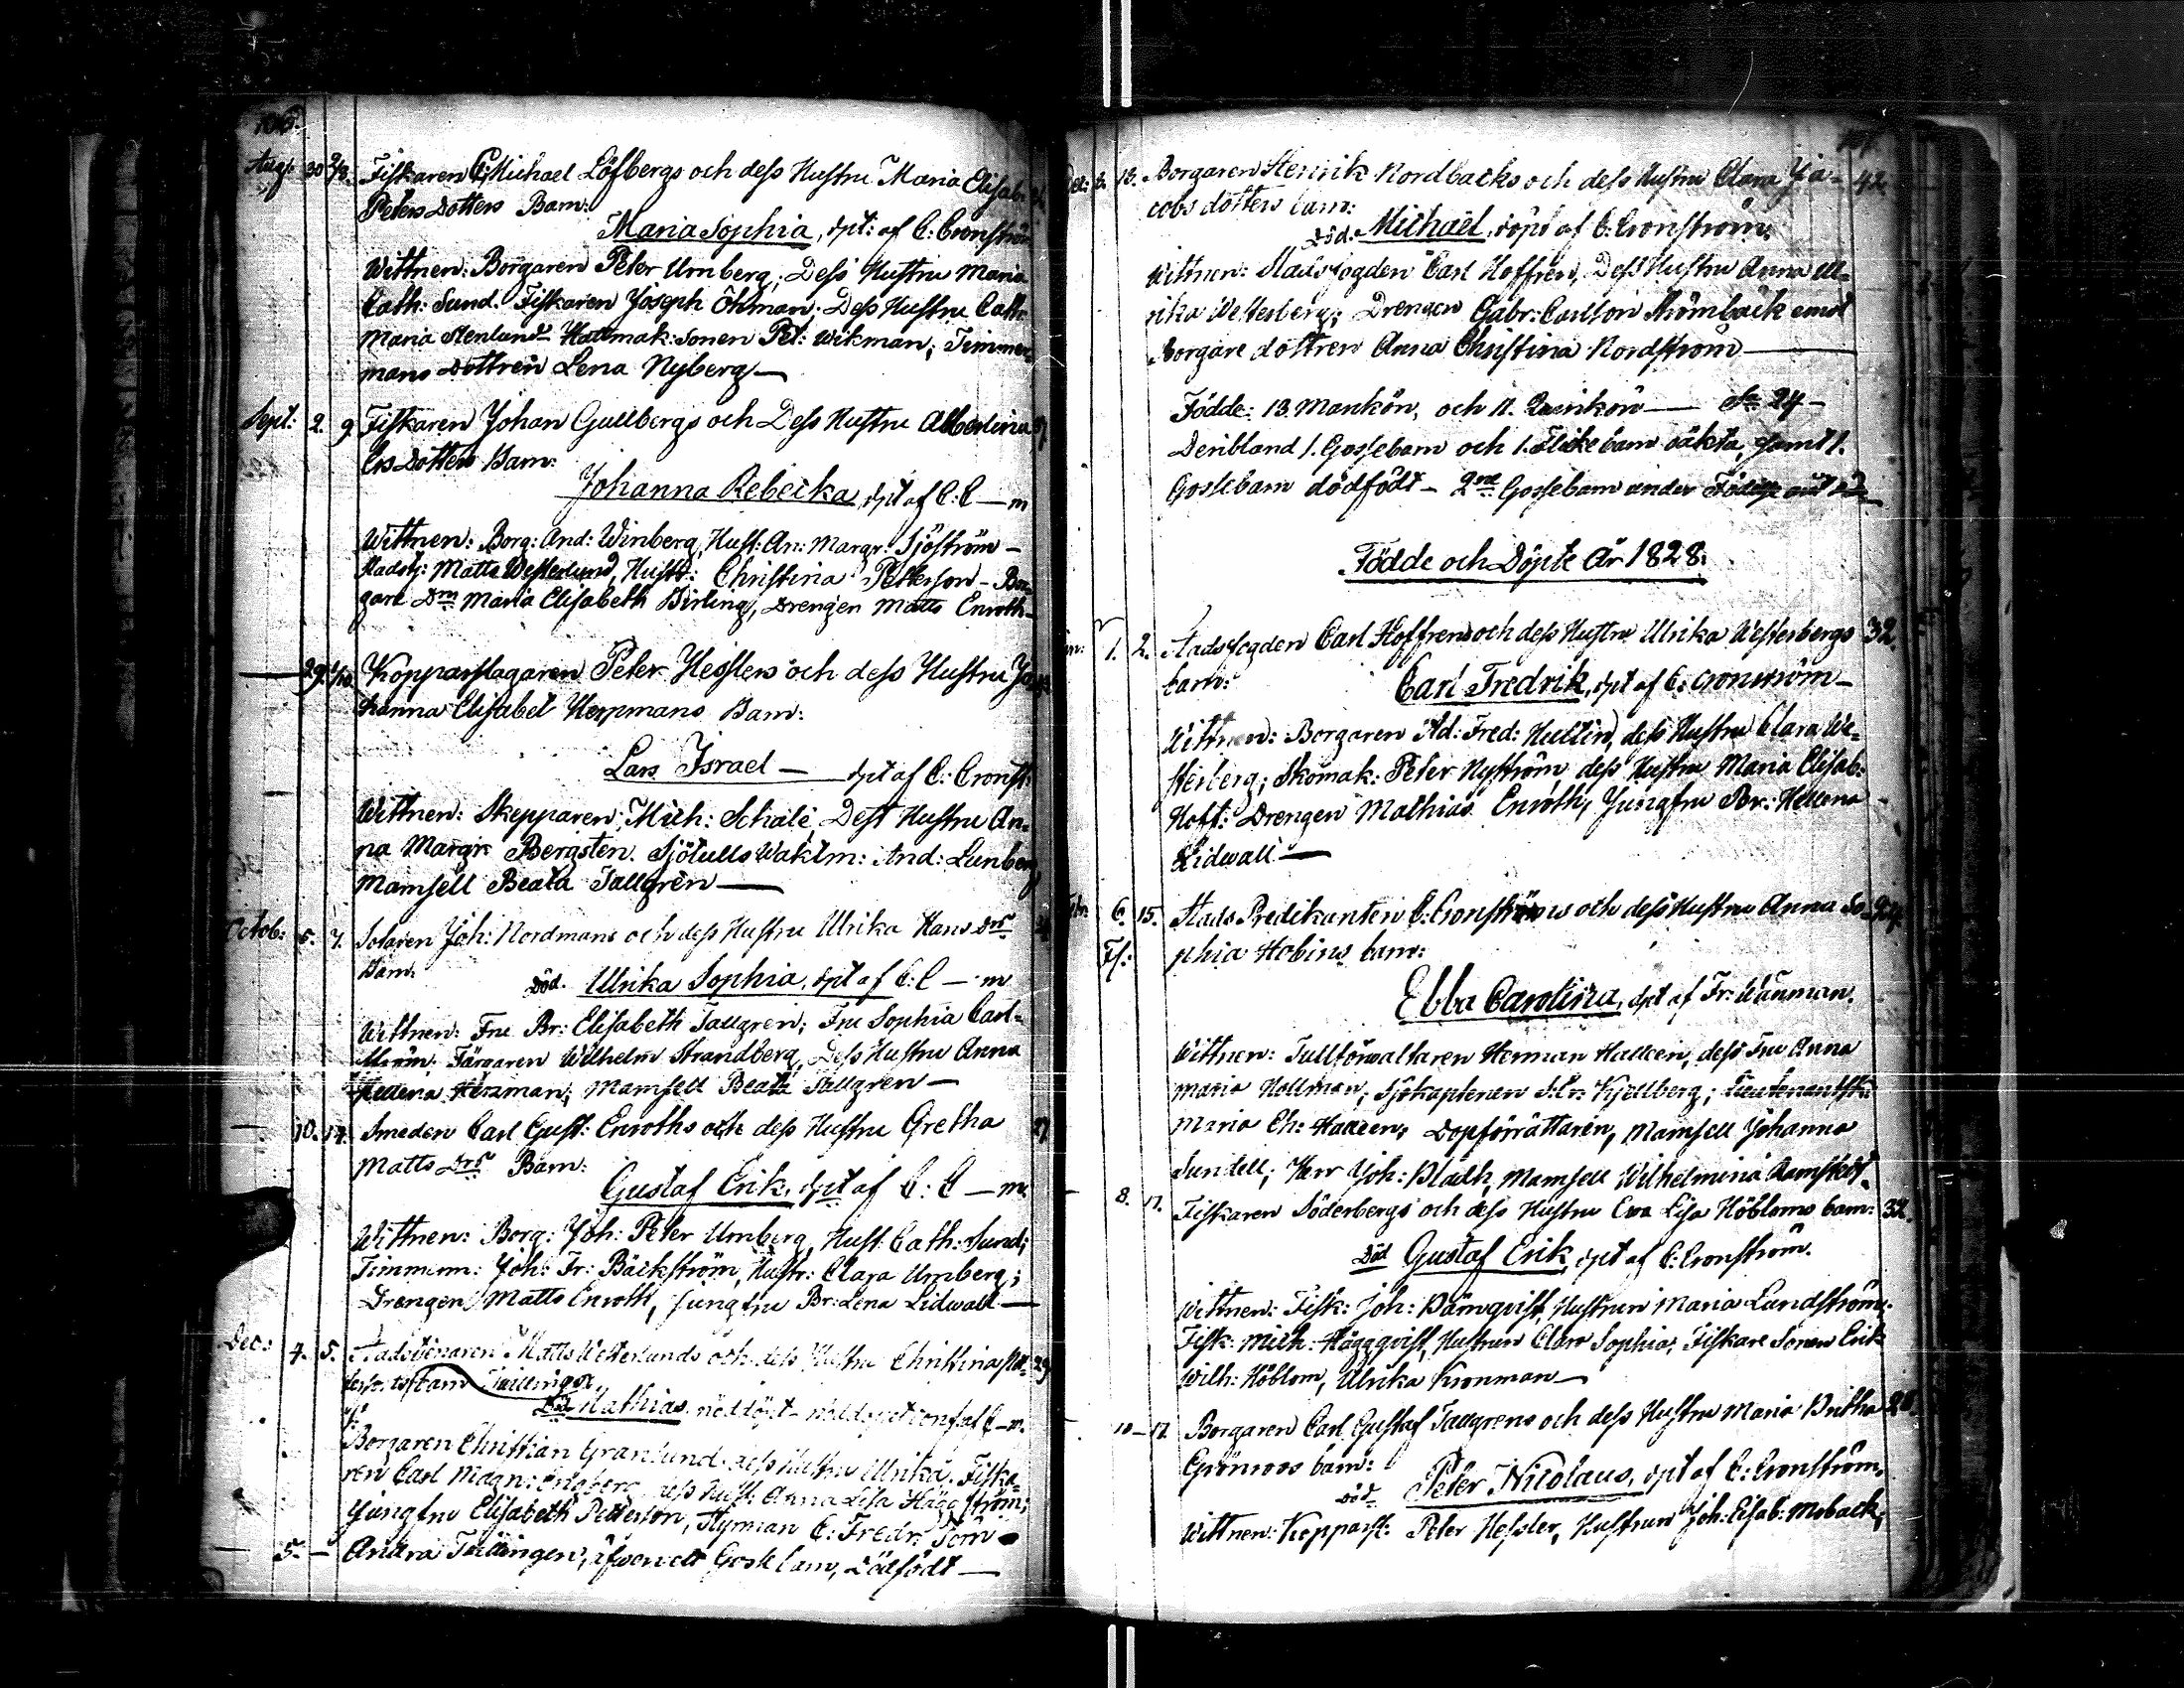 106.
Aug: 30 2/9. Fiskaren C: Michael Löfbergs och dess Hustru Maria Elisab:
Peters Dotters Barn:
Maria Sophia, dpt: af C: Cronström
Wittnen: Borgaren Peter Urnberg, Dess Hustru Maria
Cath: Sund. Fiskaren Joseph Öhman, Dess Hustru Cath:
Maria Stenlund Hattmak: Sonen Pet: Wikman; Timmer
mans Dottren Lena Nyberg —
Sept: 2. 9. Fiskaren Johan Gullbergs och Dess Hustru Albertina
Ers Dotters Barn:
Johanna Rebecka, dpt af C: C — m
Wittnen: Borg: And: Winberg, Hust: An: Margr: Sjöström —
Stadstj: Matts Westerlund, Hustr: Christina Petterson — Bor-
gare Drn Maria Elisabeth Birling, Drengen Matts Enroth —
— 29. 1/10. Kopparslagaren Peter Hesslers och dess Hustru Jo-
hanna Elisabet Herpmans Barn:
Lars Israel — dpt af C: Cronst:
Wittnen: Skepparen Mich: Schale, Dess Hustru An-
na Margr: Bergsten. Sjötulls Waktm: And: Lunberg
Mamsell Beata Tallgren —
Octob: 5. 7. Joh: Nordmans och dess Hustru Ulrika Hans Drs
Barn:
Död. Ulrika Sophia, dpt af C: C — m
Wittnen: Fru Br: Elisabeth Tallgren; Fru Sophia Carl-
ström. Färgaren Wilhelm Strandberg, Dess Hustru Anna
Hellena Herpman; Mamsell Beata Tallgren —
— 10. 14. Smeden Carl Gust: Enroths och dess Hustru Gretha 27
Matts Drs Barn:
Gustaf Erik, dpt af C: C — m.
Wittnen: Borg: Joh: Peter Urnberg, Hust: Cath: Sund;
Timmerm: Joh: Fr: Bäckström, Hustr: Clara Urnberg;
Drengen Matts Enroth, Jungfru Br: Lena Lidwall —
Dec: 4. 5. Stadstienaren Matts Westerlunds och dess Hustru Christina Pet- 29
tersons barn Twillingar,
Död Mathias nöddöpt —
Borgaren Christian Granlund. dess Hustru Ulrika. Fiska-
ren Carl Magn: Engberg dess Hust: Anna Lisa Häggström;
Jungfru Elisabeth Petterson, Styrman C: Fredr: Törn
— 5. — Andra Twillingen, äfwen ett Gossebarn, Dödfödt —
107.
Dec: 8. 13. Borgaren Henrik Nordbacks och dess Hustru Clara Ja- 42.
cobs dotters barn:
Död. Michael, döpt af C. Cronström.
Wittnen: Stadsfogden Carl Hoffren, Dess Hustru Anna Ul-
rika Westerberg; Drengen Gabr: Carlson Strömbäck samt
Borgare dottren Anna Christina Nordström —
Födde: 13. Mankön, och 11. Quinkön — Sa 24 —
Deribland 1. Gossebarn och 1. Flickebarn oäkta, samt 1.
Gossebarn dödfödt — 2ne Gossebarn under
Födde och Döpte År 1828.
1. 2. Stadsfogden Carl Hoffrens och dess Hustru Ulrika Westerbergs 32.
barn:
Carl Fredrik, dpt af C: Cronström —
Wittnen: Borgaren Ad: Fred: Hultin, dess Hustru Clara We-
sterberg; Skomak: Peter Nyström, dess Hustru Maria Elisab:
Hoff: Drengen Mathias Enroth, Jungfru Br: Hellena
Lidwall —
6. 15. Stads Predikanten C: Cronströms och dess Hustru Anna So-
phia Hobins barn:
Ebba Carolina, dpt af Fr: Wänman.
Wittnen: Tullförwaltaren Herman Halleen, dess Fru Anna
Maria Hollman; Sjökaptenen S: Er: Kjellberg;
Maria Ch: Halleen; Dopförrättaren, Mamsell Johanna
Sundell; Herr Joh: Mamsell Wilhelmina
8. 17. Fiskaren Söderbergs och dess Hustru Ewa Lisa Höbloms barn: 32.
Död Gustaf Erik, dpt af C: Cronström.
Wittnen: Fisk: Joh: Hustrun Maria Lundström;
Fisk: Mich: Häggqvist, Hustrun Clara Sophia; Fiskare Sonen Erik
Wilh: Höblom, Ulrika Kronman —
10 — 17. Borgaren Carl Gustaf Tallgrens och dess Hustru Maria Britha 28.
Grönroos barn:
Död Peter Nicolaus, dpt af C: Cronström,
Wittnen: Kopparsl: Peter Hessler, Hustrun Joh: Elisab: